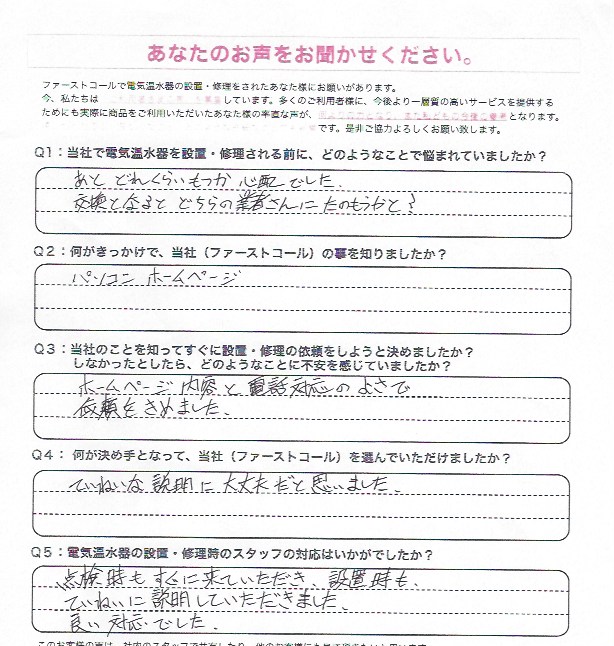 あなたのお声をお聞かせください。
ファーストコールで電気温水器の設置・修理をされたあなた様にお願いがあります。
今、私たちは しています。多くのご利用者様に、今後より一層質の高いサービスを提供する
ためにも実際に商品をご利用いただいたあなた様の率直な声が、 となります。
です。是非ご協力よろしくお願い致します。
Q1：当社で電気温水器を設置・修理される前に、どのようなことで悩まれていましたか？
あと どれくらいもつか 心配でした。
交換となると どちらの業者さんに たのもうかと？
Q2：何がきっかけで、当社（ファーストコール）の事を知りましたか？
パソコン ホームページ
Q3：当社のことを知ってすぐに設置・修理の依頼をしようと決めましたか？
しなかったとしたら、どのようなことに不安を感じていましたか？
ホームページ内容と電話対応のよさで
依頼をきめました。
Q4： 何が決め手となって、当社（ファーストコール）を選んでいただけましたか？
ていねいな説明に大丈夫だと思いました。
Q5：電気温水器の設置・修理時のスタッフの対応はいかがでしたか？
点検時もすぐに来ていただき、設置時も、
ていねいに説明していただきました。
良い対応でした。